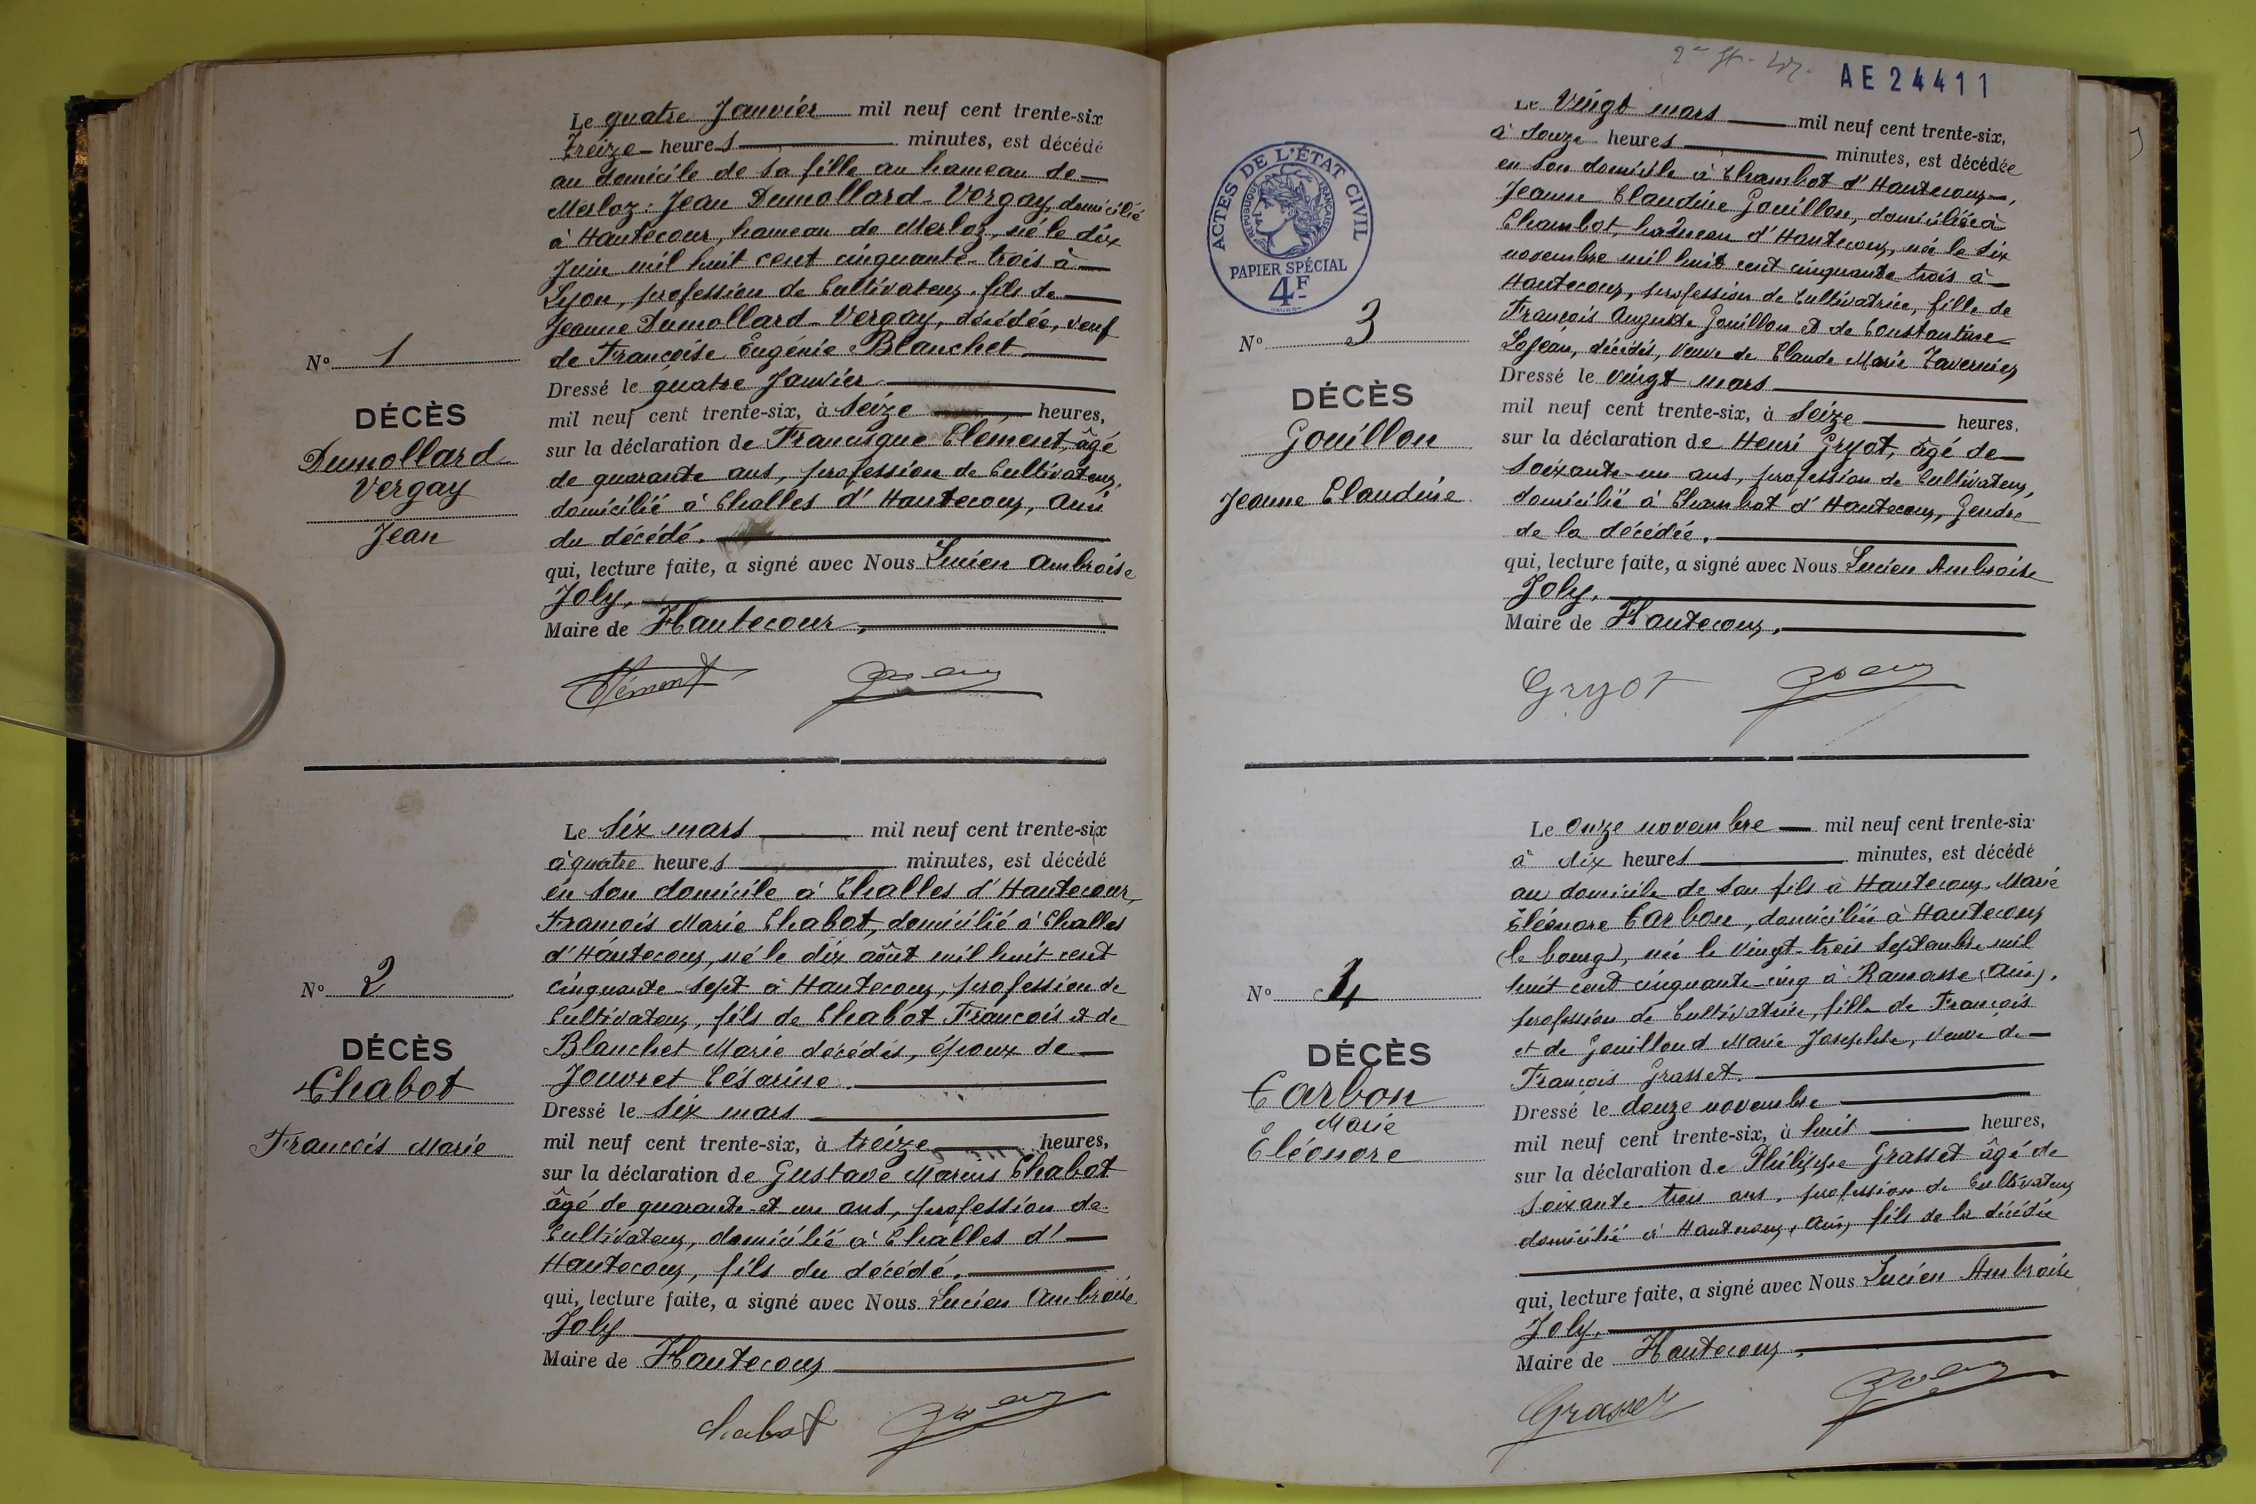 Le quatre Janvier mil neuf cent trente-six
treize heures minutes, est décédé
au domicile de sa fille au hameau de
Merloz : Jean Dumollard-Vergay, domicilié
à Hautecour, hameau de Merloz, né le dix
Juin mil huit cent cinquante-trois à
Lyon, profession de Cultivateur, fils de
Jeanne Dumollard-Vergay, décédée, veuf
de Françoise Eugénie Blanchet
Dressé le quatre Janvier
mil neuf cent trente-six, à seize heures,
sur la déclaration de Francisque Clément, âgé
de quarante ans, profession de Cultivateur,
domicilié à Challes d'Hautecour, ami
du décédé.
qui, lecture faite, a signé avec Nous Lucien Ambroise
Joly,
Maire de Hautecour,
Clément Joly
N° 1
DÉCÈS
Dumollard
Vergay
Jean
Le six mars mil neuf cent trente-six
à quatre heures minutes, est décédé
en son domicile à Challes d'Hautecour,
François Marie Chabot, domicilié à Challes
d'Hautecour, né le dix août mil huit cent
cinquante-sept à Hautecour, profession de
Cultivateur, fils de Chabot François et de
Blanchet Marie décédés, époux de
Jouvret Césarine.
Dressé le six mars
mil neuf cent trente-six, à treize heures,
sur la déclaration de Gustave Marius Chabot
âgé de quarante et un ans, profession de
Cultivateur, domicilié à Challes d'
Hautecour, fils du décédé.
qui, lecture faite, a signé avec Nous Lucien Ambroise
Joly
Maire de Hautecour
Chabot Joly
N° 2
DÉCÈS
Chabot
François Marie
AE 24411
ACTES DE L'ÉTAT CIVIL
RÉPUBLIQUE FRANÇAISE
PAPIER SPÉCIAL
4F
Le vingt mars mil neuf cent trente-six,
à douze heures minutes, est décédée
en son domicile à Chambot d'Hautecour,
Jeanne Claudine Gouillon, domiciliée à
Chambot, hameau d'Hautecour, née le six
novembre mil huit cent cinquante trois à
Hautecour, profession de Cultivatrice, fille de
François Auguste Gouillon et de Constantine
Lajean, décédés, veuve de Claude Marie Tavernier
Dressé le vingt mars
mil neuf cent trente-six, à seize heures,
sur la déclaration de Henri Gryot, âgé de
soixante-un ans, profession de Cultivateur,
domicilié à Chambot d'Hautecour, Gendre
de la décédée,
qui, lecture faite, a signé avec Nous Lucien Ambroise
Joly,
Maire de Hautecour,
Gryot Joly
N° 3
DÉCÈS
Gouillon
Jeanne Claudine
Le onze novembre mil neuf cent trente-six
à dix heures minutes, est décédé
au domicile de son fils à Hautecour, Marie
Eléonore Carbon, domiciliée à Hautecour
(le bourg), née le vingt-trois septembre mil
huit cent cinquante-cinq à Ramasse (Ain),
profession de Cultivatrice, fille de François
et de Gouilloud Marie Josephte, veuve de
François Grasset.
Dressé le douze novembre
mil neuf cent trente-six, à huit heures,
sur la déclaration de Philippe Grasset âgé de
soixante-trois ans, profession de Cultivateur
domicilié à Hautecour, Ain, fils de la décédée
qui, lecture faite, a signé avec Nous Lucien Ambroise
Joly,
Maire de Hautecour,
Grasset Joly
N° 4
DÉCÈS
Carbon
Marie
Eléonore